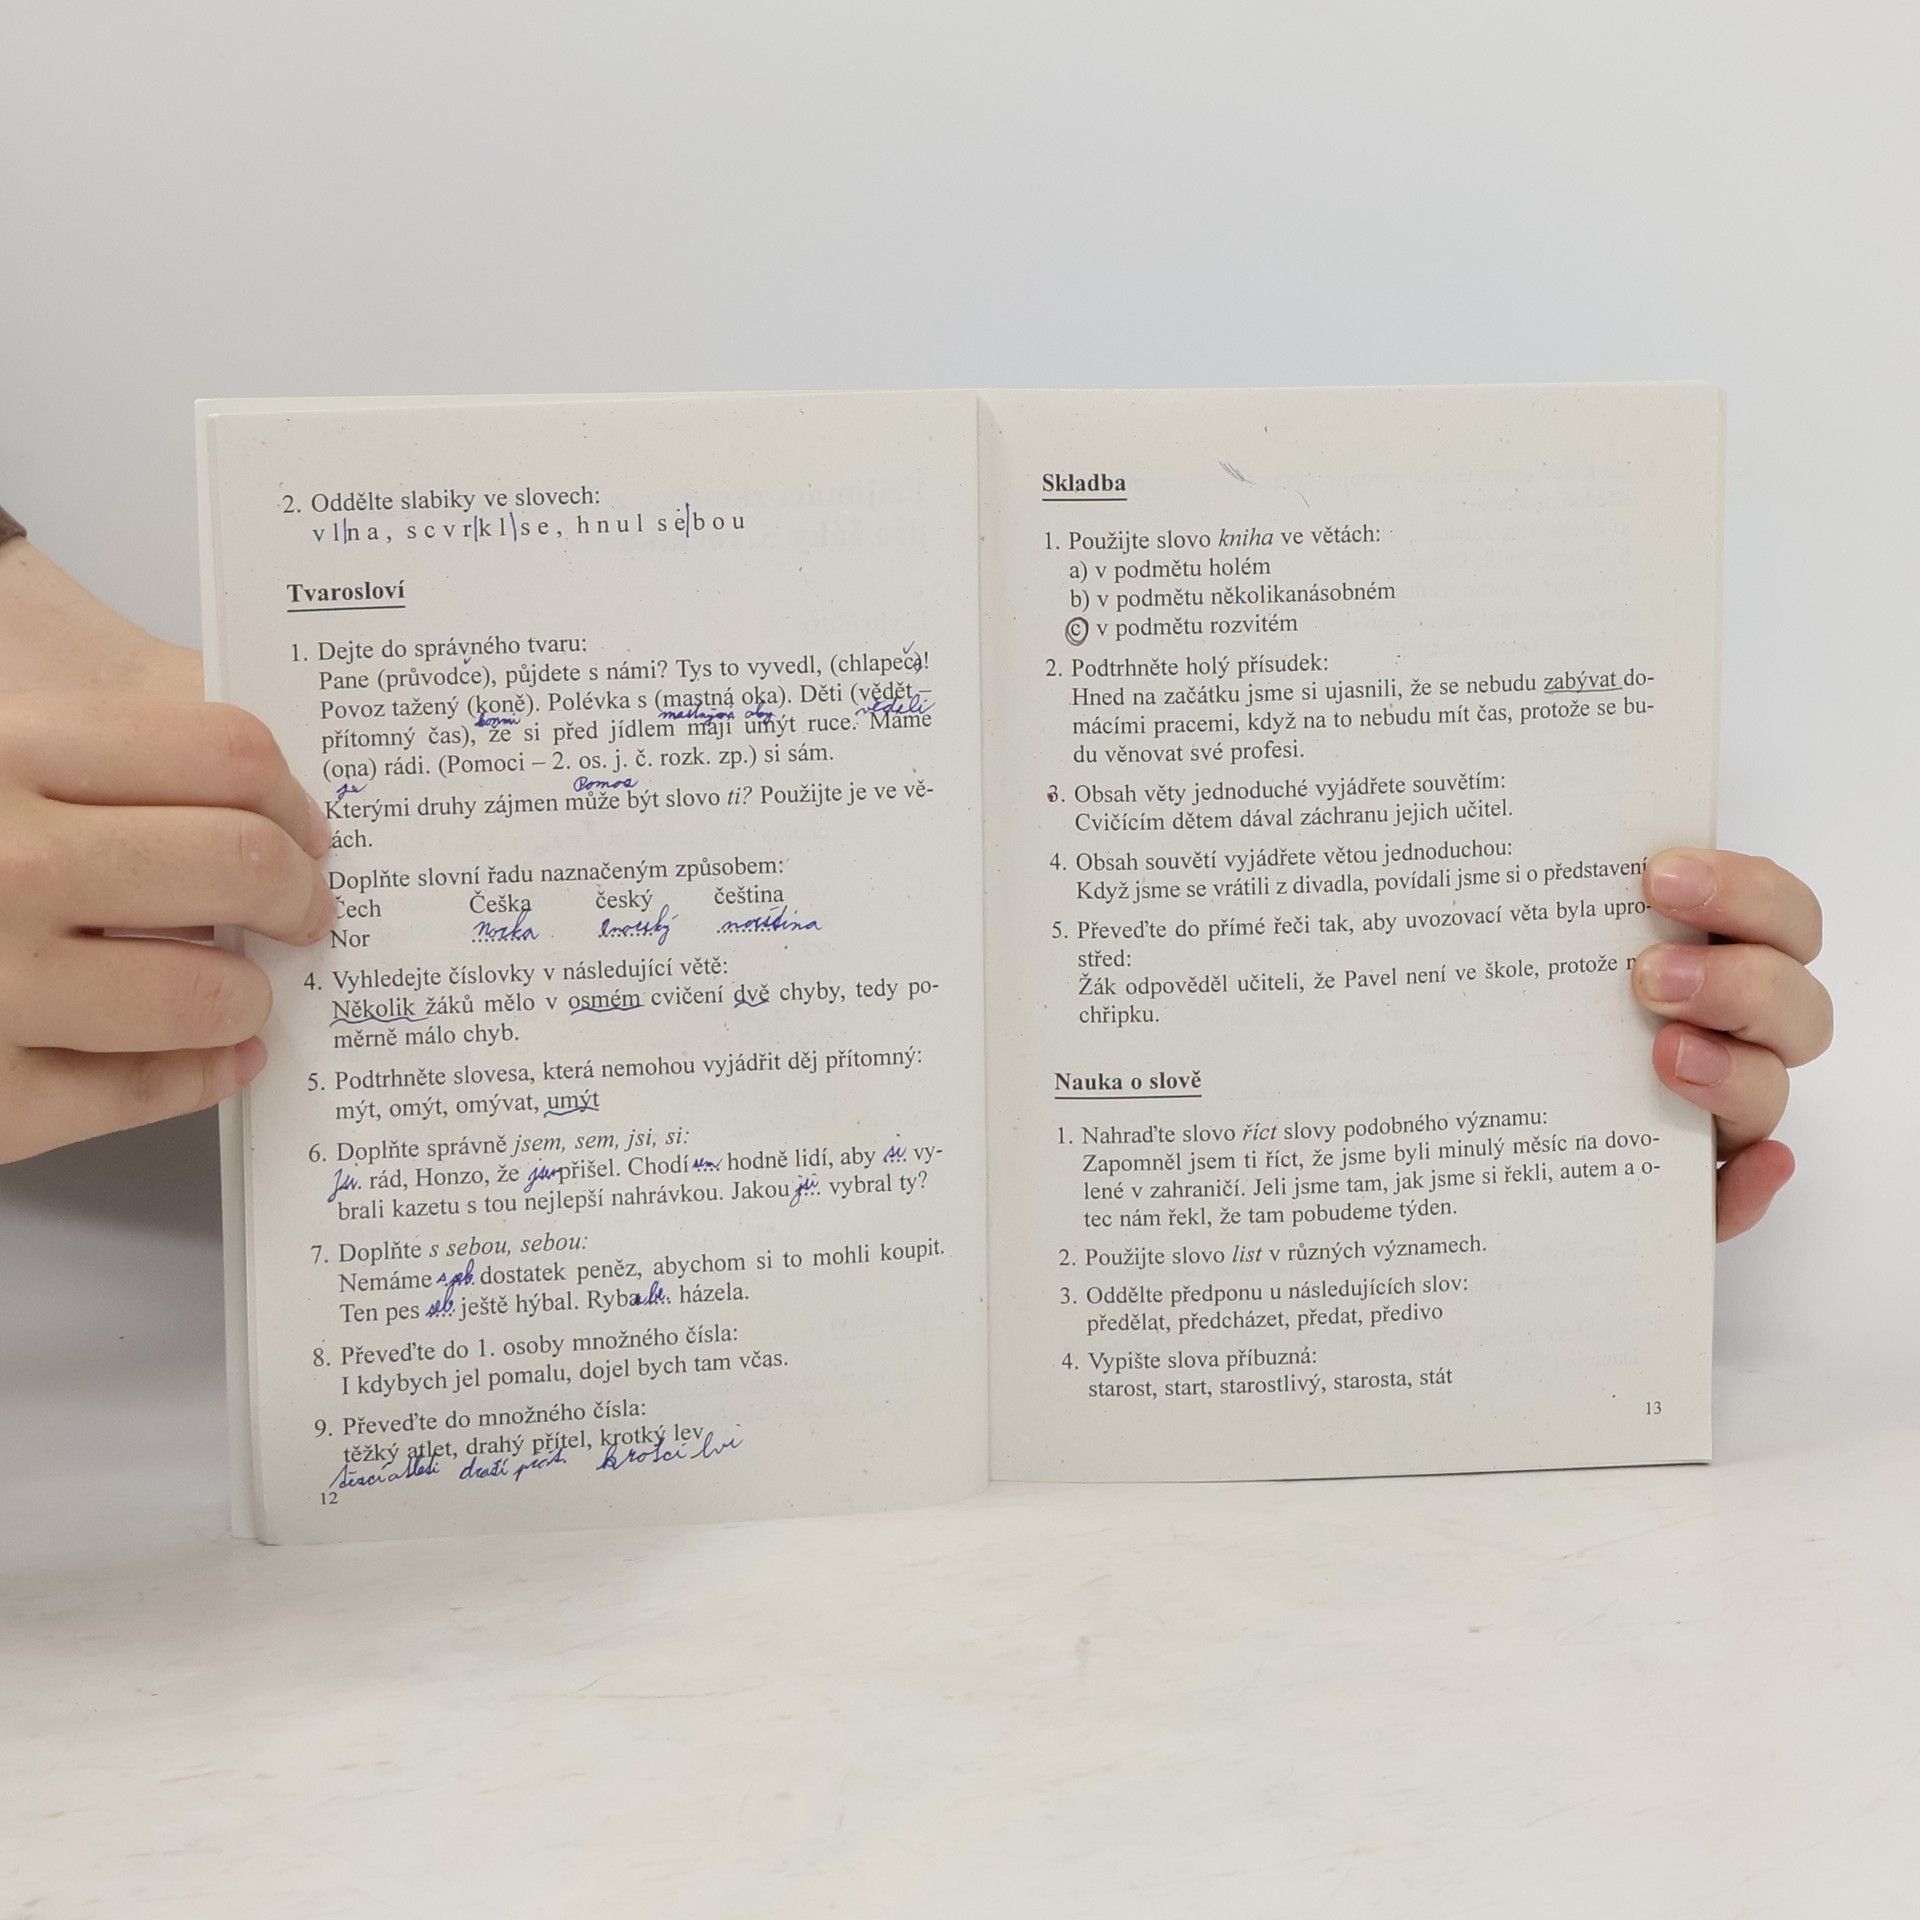 2. Oddělte slabiky ve slovech:
vl|na, scvr|kl|se, hnul se|bou
Tvarosloví
1. Dejte do správného tvaru:
Pane (průvodce), půjdete s námi? Tys to vyvedl, (chlapec)!
Povoz tažený (koně). Polévka s (mastná oka). Děti (vědět –
koňmi věděli
přítomný čas), že si před jídlem mají umýt ruce. Máme
(ona) rádi. (Pomoci – 2. os. j. č. rozk. zp.) si sám.
je Pomoz
Kterými druhy zájmen může být slovo ti? Použijte je ve vě-
ách.
Doplňte slovní řadu naznačeným způsobem:
Čech Češka český čeština
Nor Norka
4. Vyhledejte číslovky v následující větě:
Několik žáků mělo v osmém cvičení dvě chyby, tedy po-
měrně málo chyb.
5. Podtrhněte slovesa, která nemohou vyjádřit děj přítomný:
mýt, omýt, omývat, umýt
6. Doplňte správně jsem, sem, jsi, si:
rád, Honzo, že přišel. Chodí sem hodně lidí, aby si vy-
brali kazetu s tou nejlepší nahrávkou. Jakou jsi vybral ty?
7. Doplňte s sebou, sebou:
Nemáme dostatek peněz, abychom si to mohli koupit.
Ten pes seb. ještě hýbal. Ryba házela.
8. Převeďte do 1. osoby množného čísla:
I kdybych jel pomalu, dojel bych tam včas.
9. Převeďte do množného čísla:
těžký atlet, drahý přítel, krotký lev
krotcí lvi
12
Skladba
1. Použijte slovo kniha ve větách:
a) v podmětu holém
b) v podmětu několikanásobném
c) v podmětu rozvitém
2. Podtrhněte holý přísudek:
Hned na začátku jsme si ujasnili, že se nebudu zabývat do-
mácími pracemi, když na to nebudu mít čas, protože se bu-
du věnovat své profesi.
3. Obsah věty jednoduché vyjádřete souvětím:
Cvičícím dětem dával záchranu jejich učitel.
4. Obsah souvětí vyjádřete větou jednoduchou:
Když jsme se vrátili z divadla, povídali jsme si o představení
5. Převeďte do přímé řeči tak, aby uvozovací věta byla upro-
střed:
Žák odpověděl učiteli, že Pavel není ve škole, protože
chřipku.
Nauka o slově
1. Nahraďte slovo říct slovy podobného významu:
Zapomněl jsem ti říct, že jsme byli minulý měsíc na dovo-
lené v zahraničí. Jeli jsme tam, jak jsme si řekli, autem a o-
tec nám řekl, že tam pobudeme týden.
2. Použijte slovo list v různých významech.
3. Oddělte předponu u následujících slov:
předělat, předcházet, předat, předivo
4. Vypište slova příbuzná:
starost, start, starostlivý, starosta, stát
13